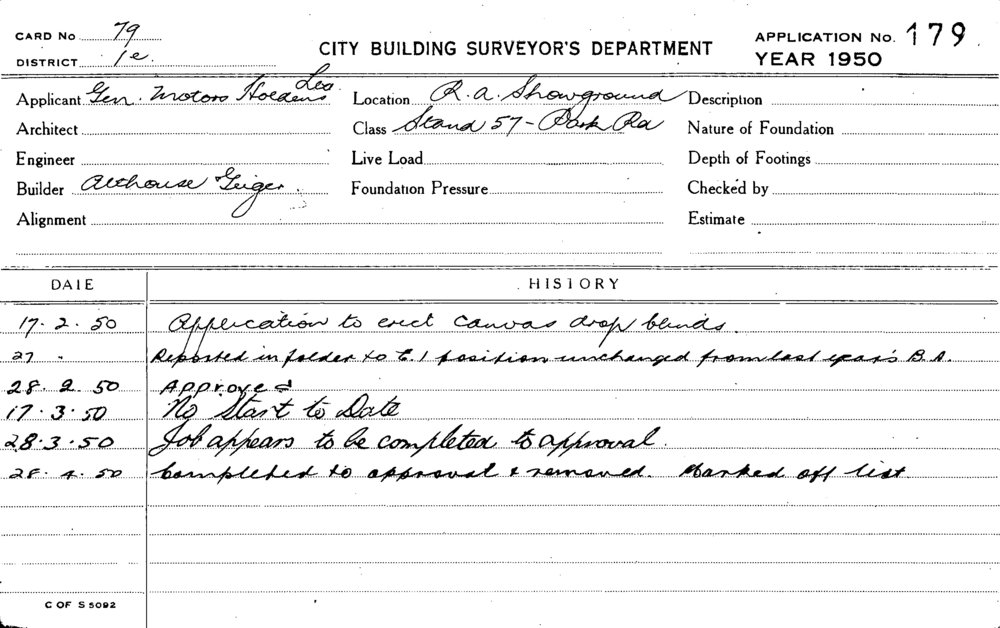 CARD No 79
DISTRICT 1e.
CITY BUILDING SURVEYOR'S DEPARTMENT
APPLICATION No. 179
YEAR 1950
Applicant Gen. Motors Holdens Ltd
Location R.A. Showground
Description
Architect
Class Stand 57 - Park Rd
Nature of Foundation
Engineer
Live Load
Depth of Footings
Builder Althouse Geiger.
Foundation Pressure
Checked by
Alignment
Estimate
DATE HISTORY
17.2.50 Application to erect canvas drop blinds.
27 " Reported in folder to E.1 position unchanged from last year's B.A.
28.2.50 Approved
17.3.50 No Start to Date
28.3.50 Job appears to be completed to approval.
28.4.50 Completed to approval & removed. Marked off list
C OF S 5092